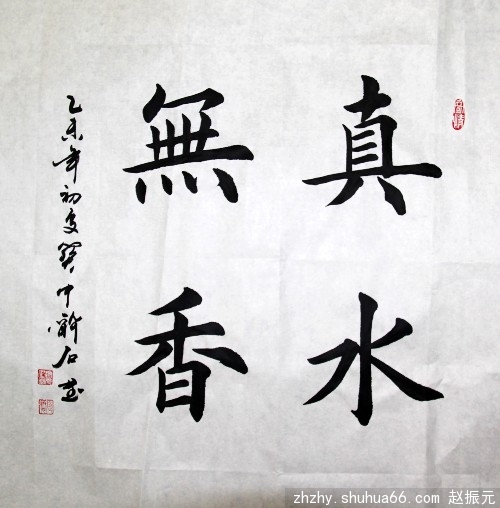 真水
無香
乙未年初夏 中 石
zhzhy.shuhua66.com 赵振元